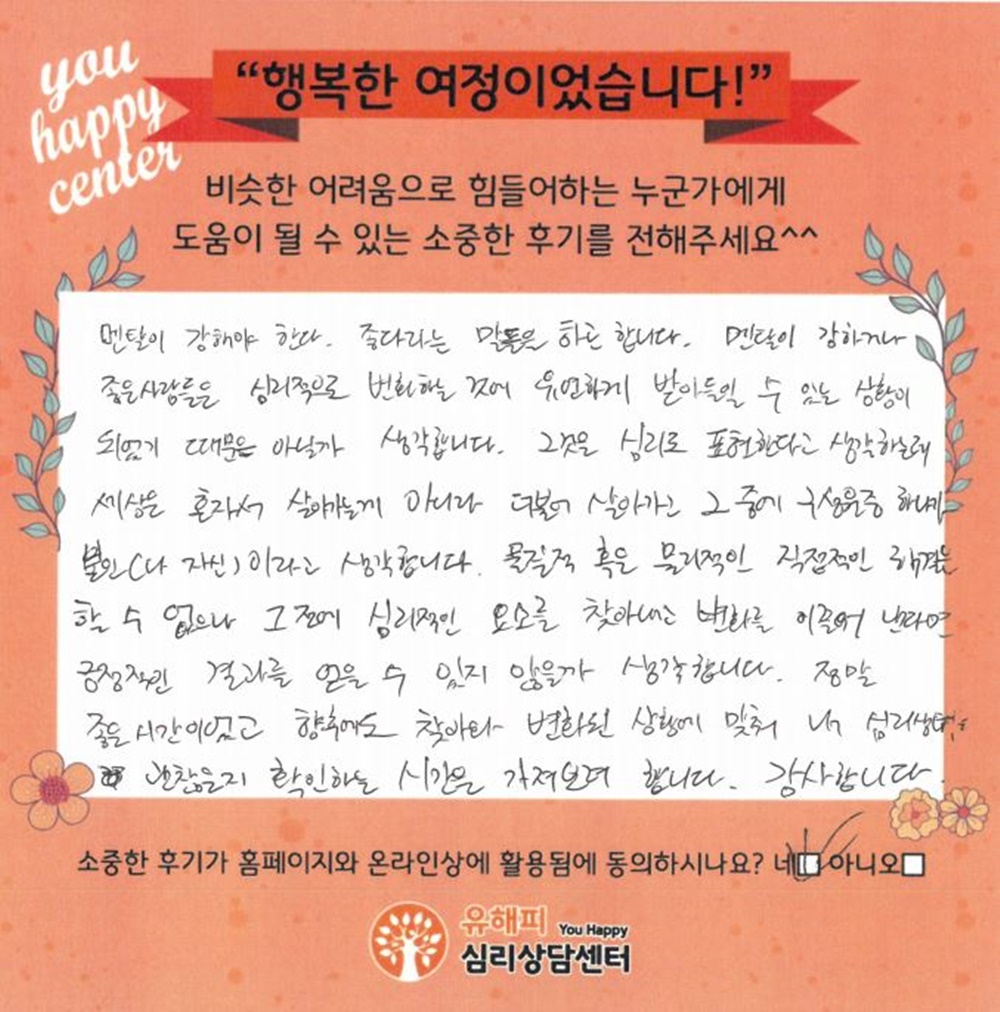 you
happy
center
“행복한 여정이었습니다!”
비슷한 어려움으로 힘들어하는 누군가에게
도움이 될 수 있는 소중한 후기를 전해주세요^^
멘탈이 강해야 한다. 좋다라는 말들을 하곤 합니다. 멘탈이 강하거나
좋은사람들은 심리적으로 변화하는 것에 유연하게 받아들일 수 있는 상황이
되었기 때문은 아닐까 생각합니다. 그것은 심리로 표현한다고 생각하는데
세상은 혼자서 살아가는게 아니라 더불어 살아가고 그 중에 구성원중 하나가
본인(나 자신)이라고 생각합니다. 물질적 혹은 물리적인 직접적인 해결은
할 수 없으나 그 전에 심리적인 요소를 찾아내고 변화를 이끌어 낸다면
긍정적인 결과를 얻을 수 있지 않을까 생각합니다. 정말
좋은 시간이었고 향후에도 찾아와 변화된 상황에 맞춰 내
괜찮은지 확인하는 시간을 가져보려 합니다. 감사합니다.
소중한 후기가 홈페이지와 온라인상에 활용됨에 동의하시나요? 네 아니오
유해피 You Happy
심리상담센터